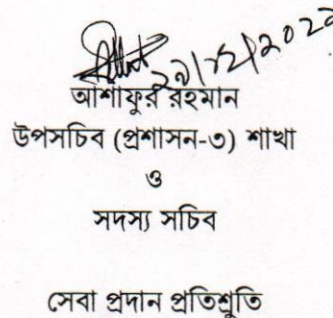 ২৯/১২/২০২২
আশাফুর রহমান
উপসচিব (প্রশাসন-৩) শাখা
ও
সদস্য সচিব
সেবা প্রদান প্রতিশ্রুতি